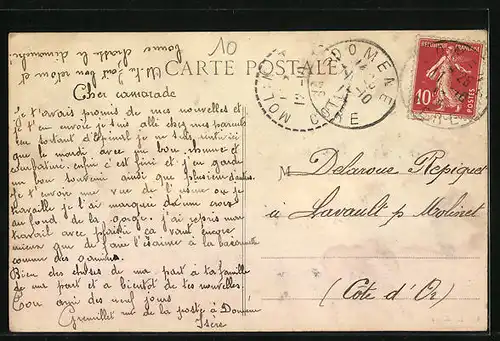 bonne chasse le dimanche
10
CARTE POSTALE
DOMENE
RÉPUBLIQUE FRANÇAISE
10
POSTES
Cher camarade
Je t'avais promis de mes nouvelles et
je t'en envoie je suis allé chez mes parents
en sortant d'Epinal je me suis
que le mardi avec un bon rhume et
enfin c'est fini et j'en garde
un bon souvenir ainsi que plusieurs
Je t'envoie une vue de l'usine ou je
travaille je l'ai marquée d'une croix
au fond de la gorge. j'ai repris mon
travail avec plaisir ca vaut encore
mieux que de faire l'escrime à la baionnette
comme des gamins.
Bien des choses de ma part à ta famille
de ma part et a bientot de tes nouvelles.
Ton ami des neuf jours
Grenuillet rue de la poste à Domene
Isère
M Delaroue Repiquet
à Lavault p Molinet
(Cote d'Or)